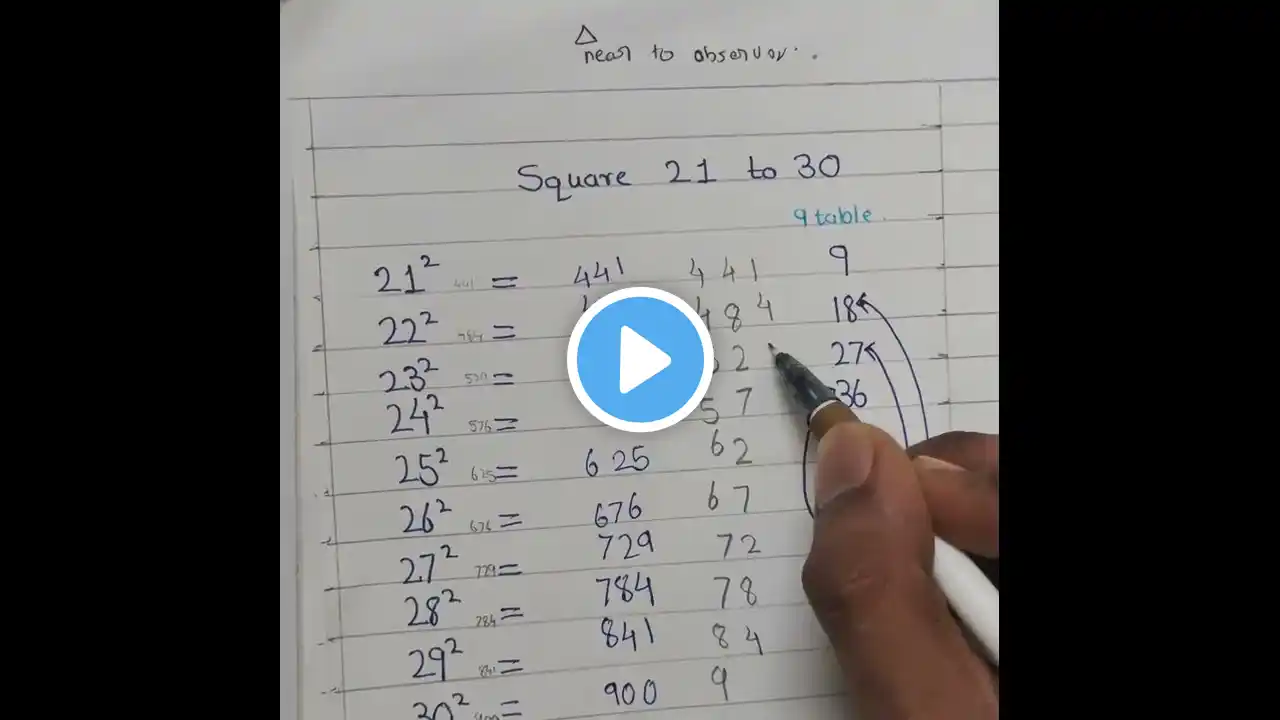 △
near to observer.
Square 21 to 30
9 table.
21² 441 = 441 4 4 1 9
22² 784 = 4 8 4 18
23² 529 = 2 27
24² 576 = 5 7 36
25² 625 = 625 6 2
26² 676 = 676 6 7
27² 729 = 729 7 2
28² 784 = 784 7 8
29² 841 = 841 8 4
30² 900 = 900 9